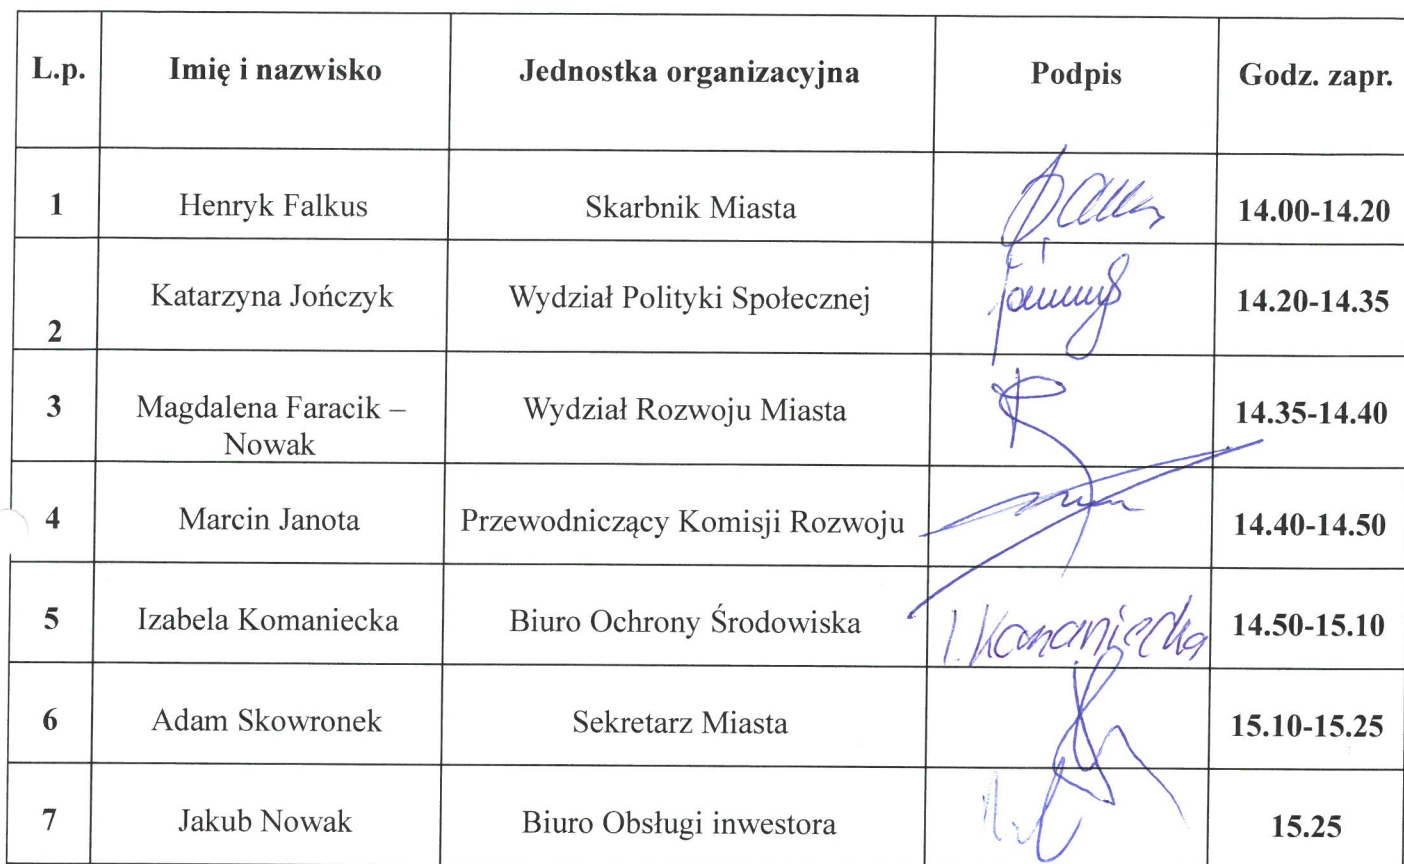 L.p. Imię i nazwisko Jednostka organizacyjna Podpis Godz. zapr.
1 Henryk Falkus Skarbnik Miasta 14.00-14.20
2 Katarzyna Jończyk Wydział Polityki Społecznej 14.20-14.35
3 Magdalena Faracik – Wydział Rozwoju Miasta 14.35-14.40
Nowak
4 Marcin Janota Przewodniczący Komisji Rozwoju 14.40-14.50
5 Izabela Komaniecka Biuro Ochrony Środowiska I. Komaniecka 14.50-15.10
6 Adam Skowronek Sekretarz Miasta 15.10-15.25
7 Jakub Nowak Biuro Obsługi inwestora 15.25